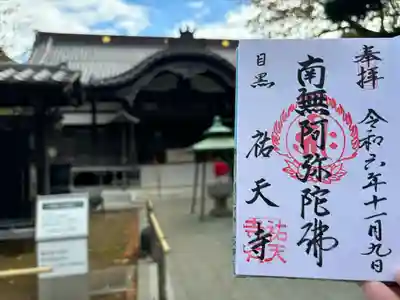 奉拝
令和六年十一月九日
南無阿弥陀佛
目黒
祐天寺
祐天寺